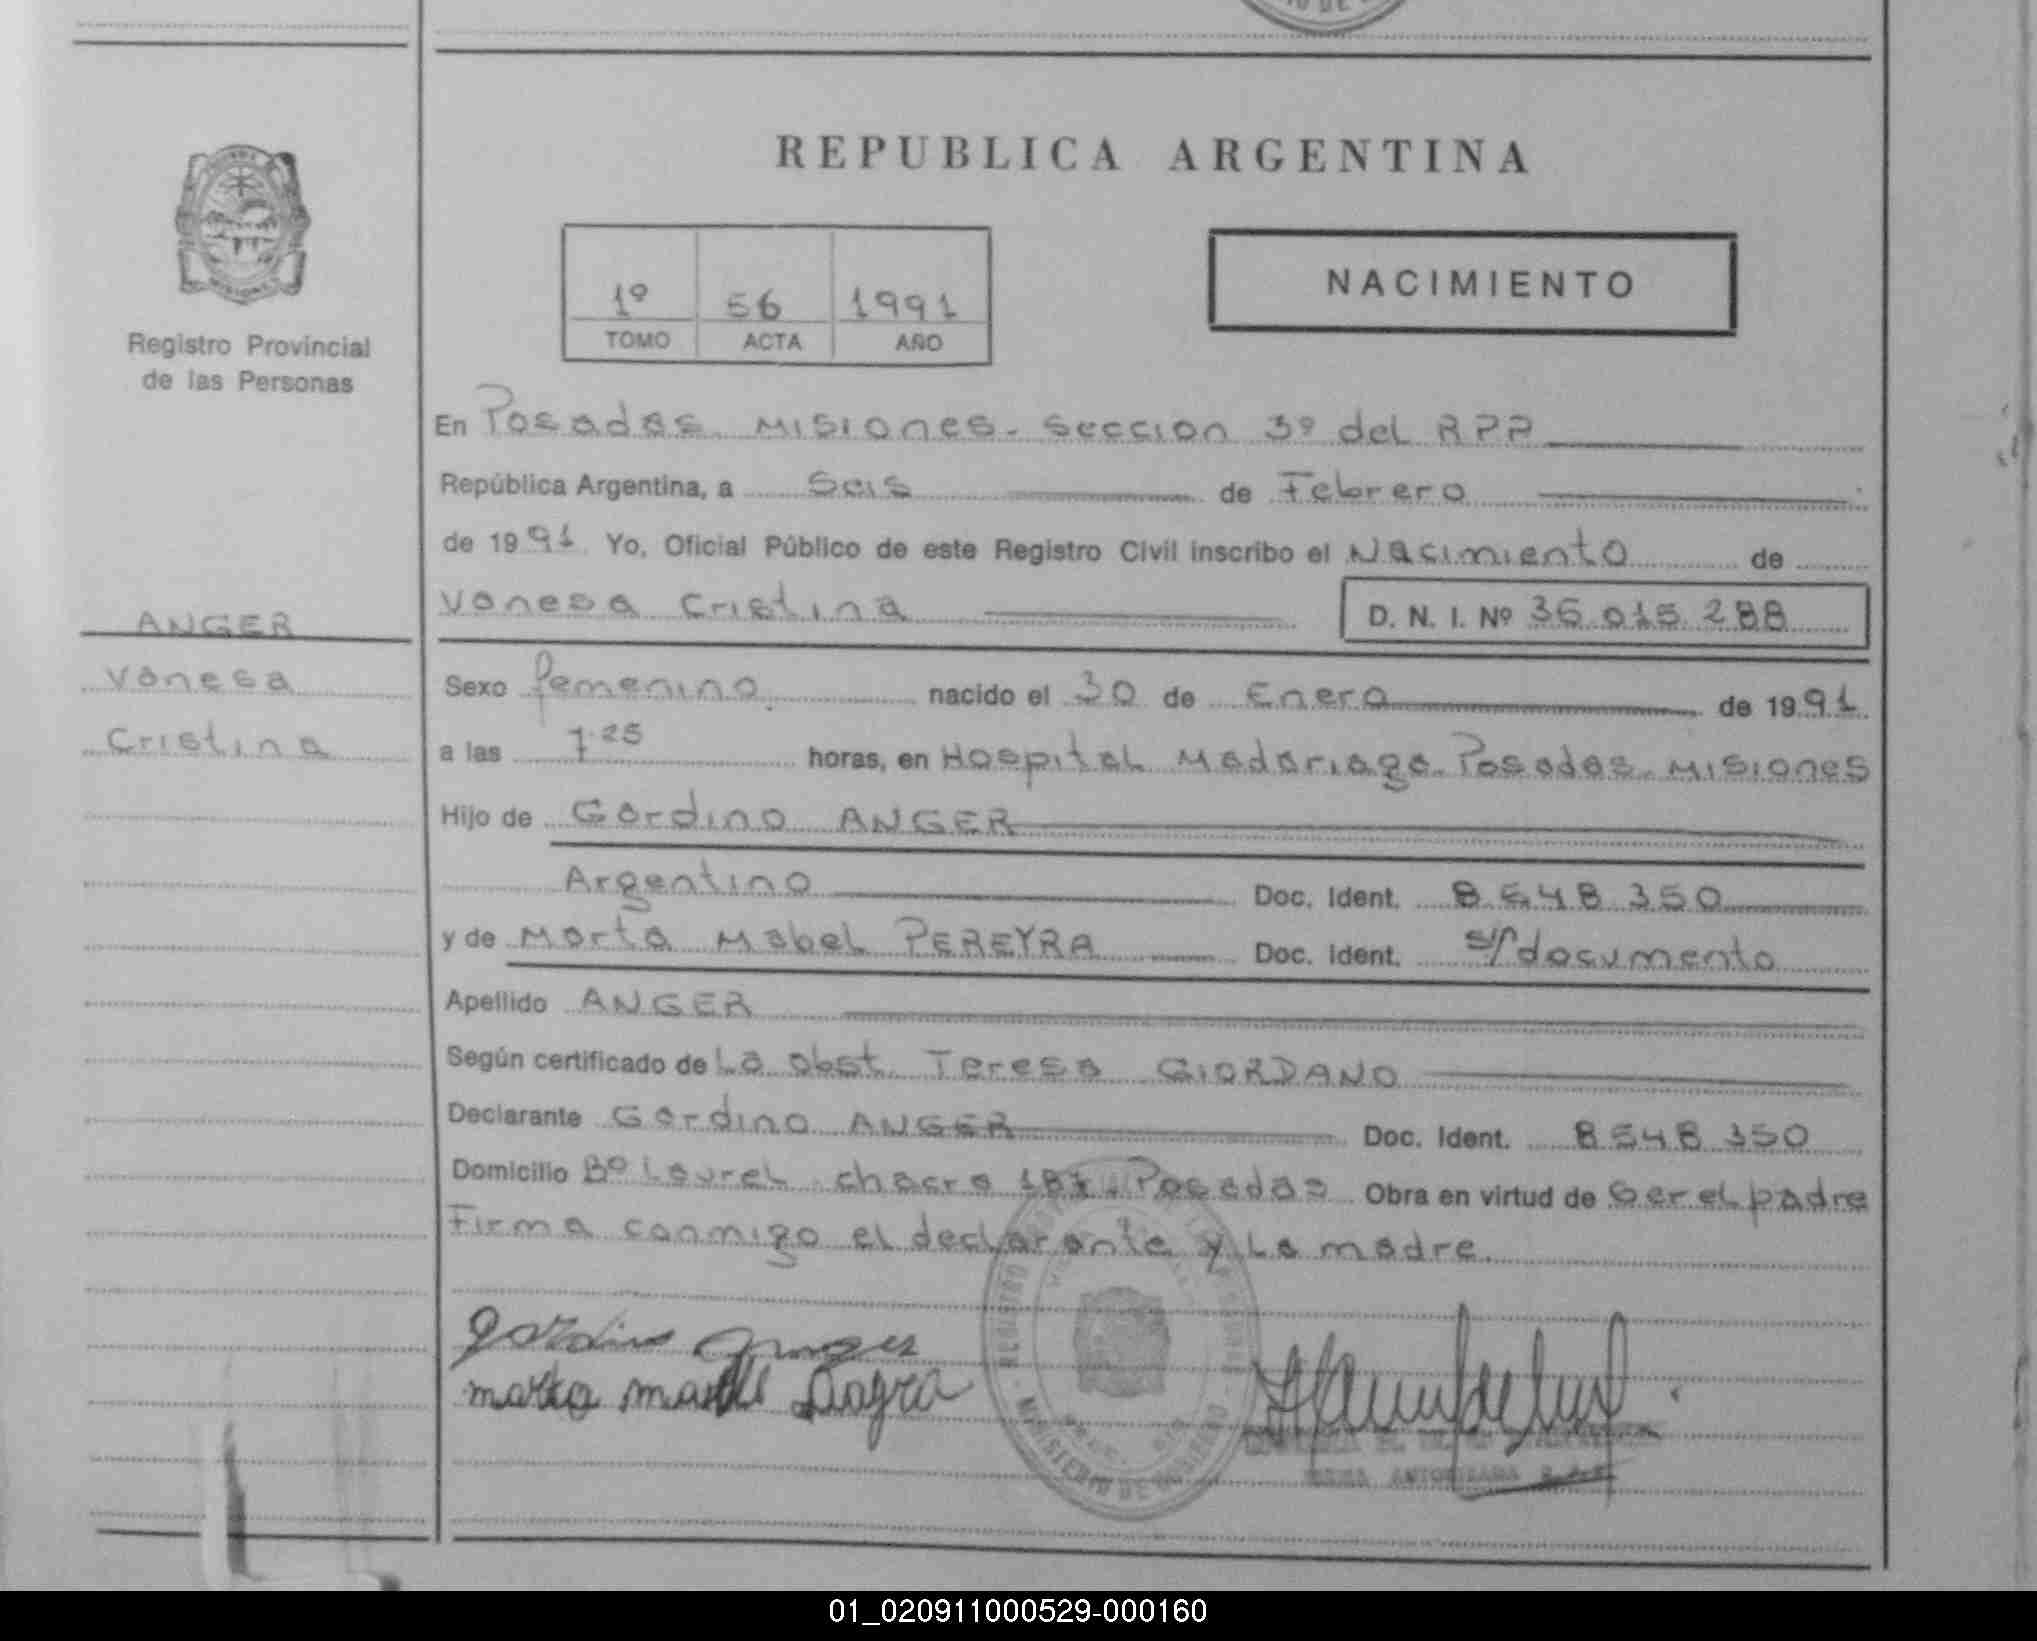 REPUBLICA ARGENTINA
NACIMIENTO
1º 56 1991
TOMO ACTA AÑO
Registro Provincial
de las Personas
En Posadas. Misiones. Seccion 3º del RPP
República Argentina, a Seis de Febrero
de 1991. Yo, Oficial Público de este Registro Civil inscribo el Nacimiento de
Vanesa Cristina D. N. I. Nº 36.015.288
ANGER
Vanesa
Cristina
Sexo femenino nacido el 30 de Enero de 1991
a las 7.25 horas, en Hospital Madariaga. Posadas. Misiones
Hijo de Gardino ANGER
Argentino Doc. Ident. 8548350
y de Marta Mabel PEREYRA Doc. Ident. s/documento
Apellido ANGER
Según certificado de La obst. Teresa GIORDANO
Declarante Gardino ANGER Doc. Ident. 8548350
Domicilio Bº Laurel chacra Posadas Obra en virtud de Ser el padre
Firma conmigo el declarante y La madre.
REGISTRO
MINISTERIO DE GOBIERNO
FIRMA AUTORIZADA
01_020911000529-000160